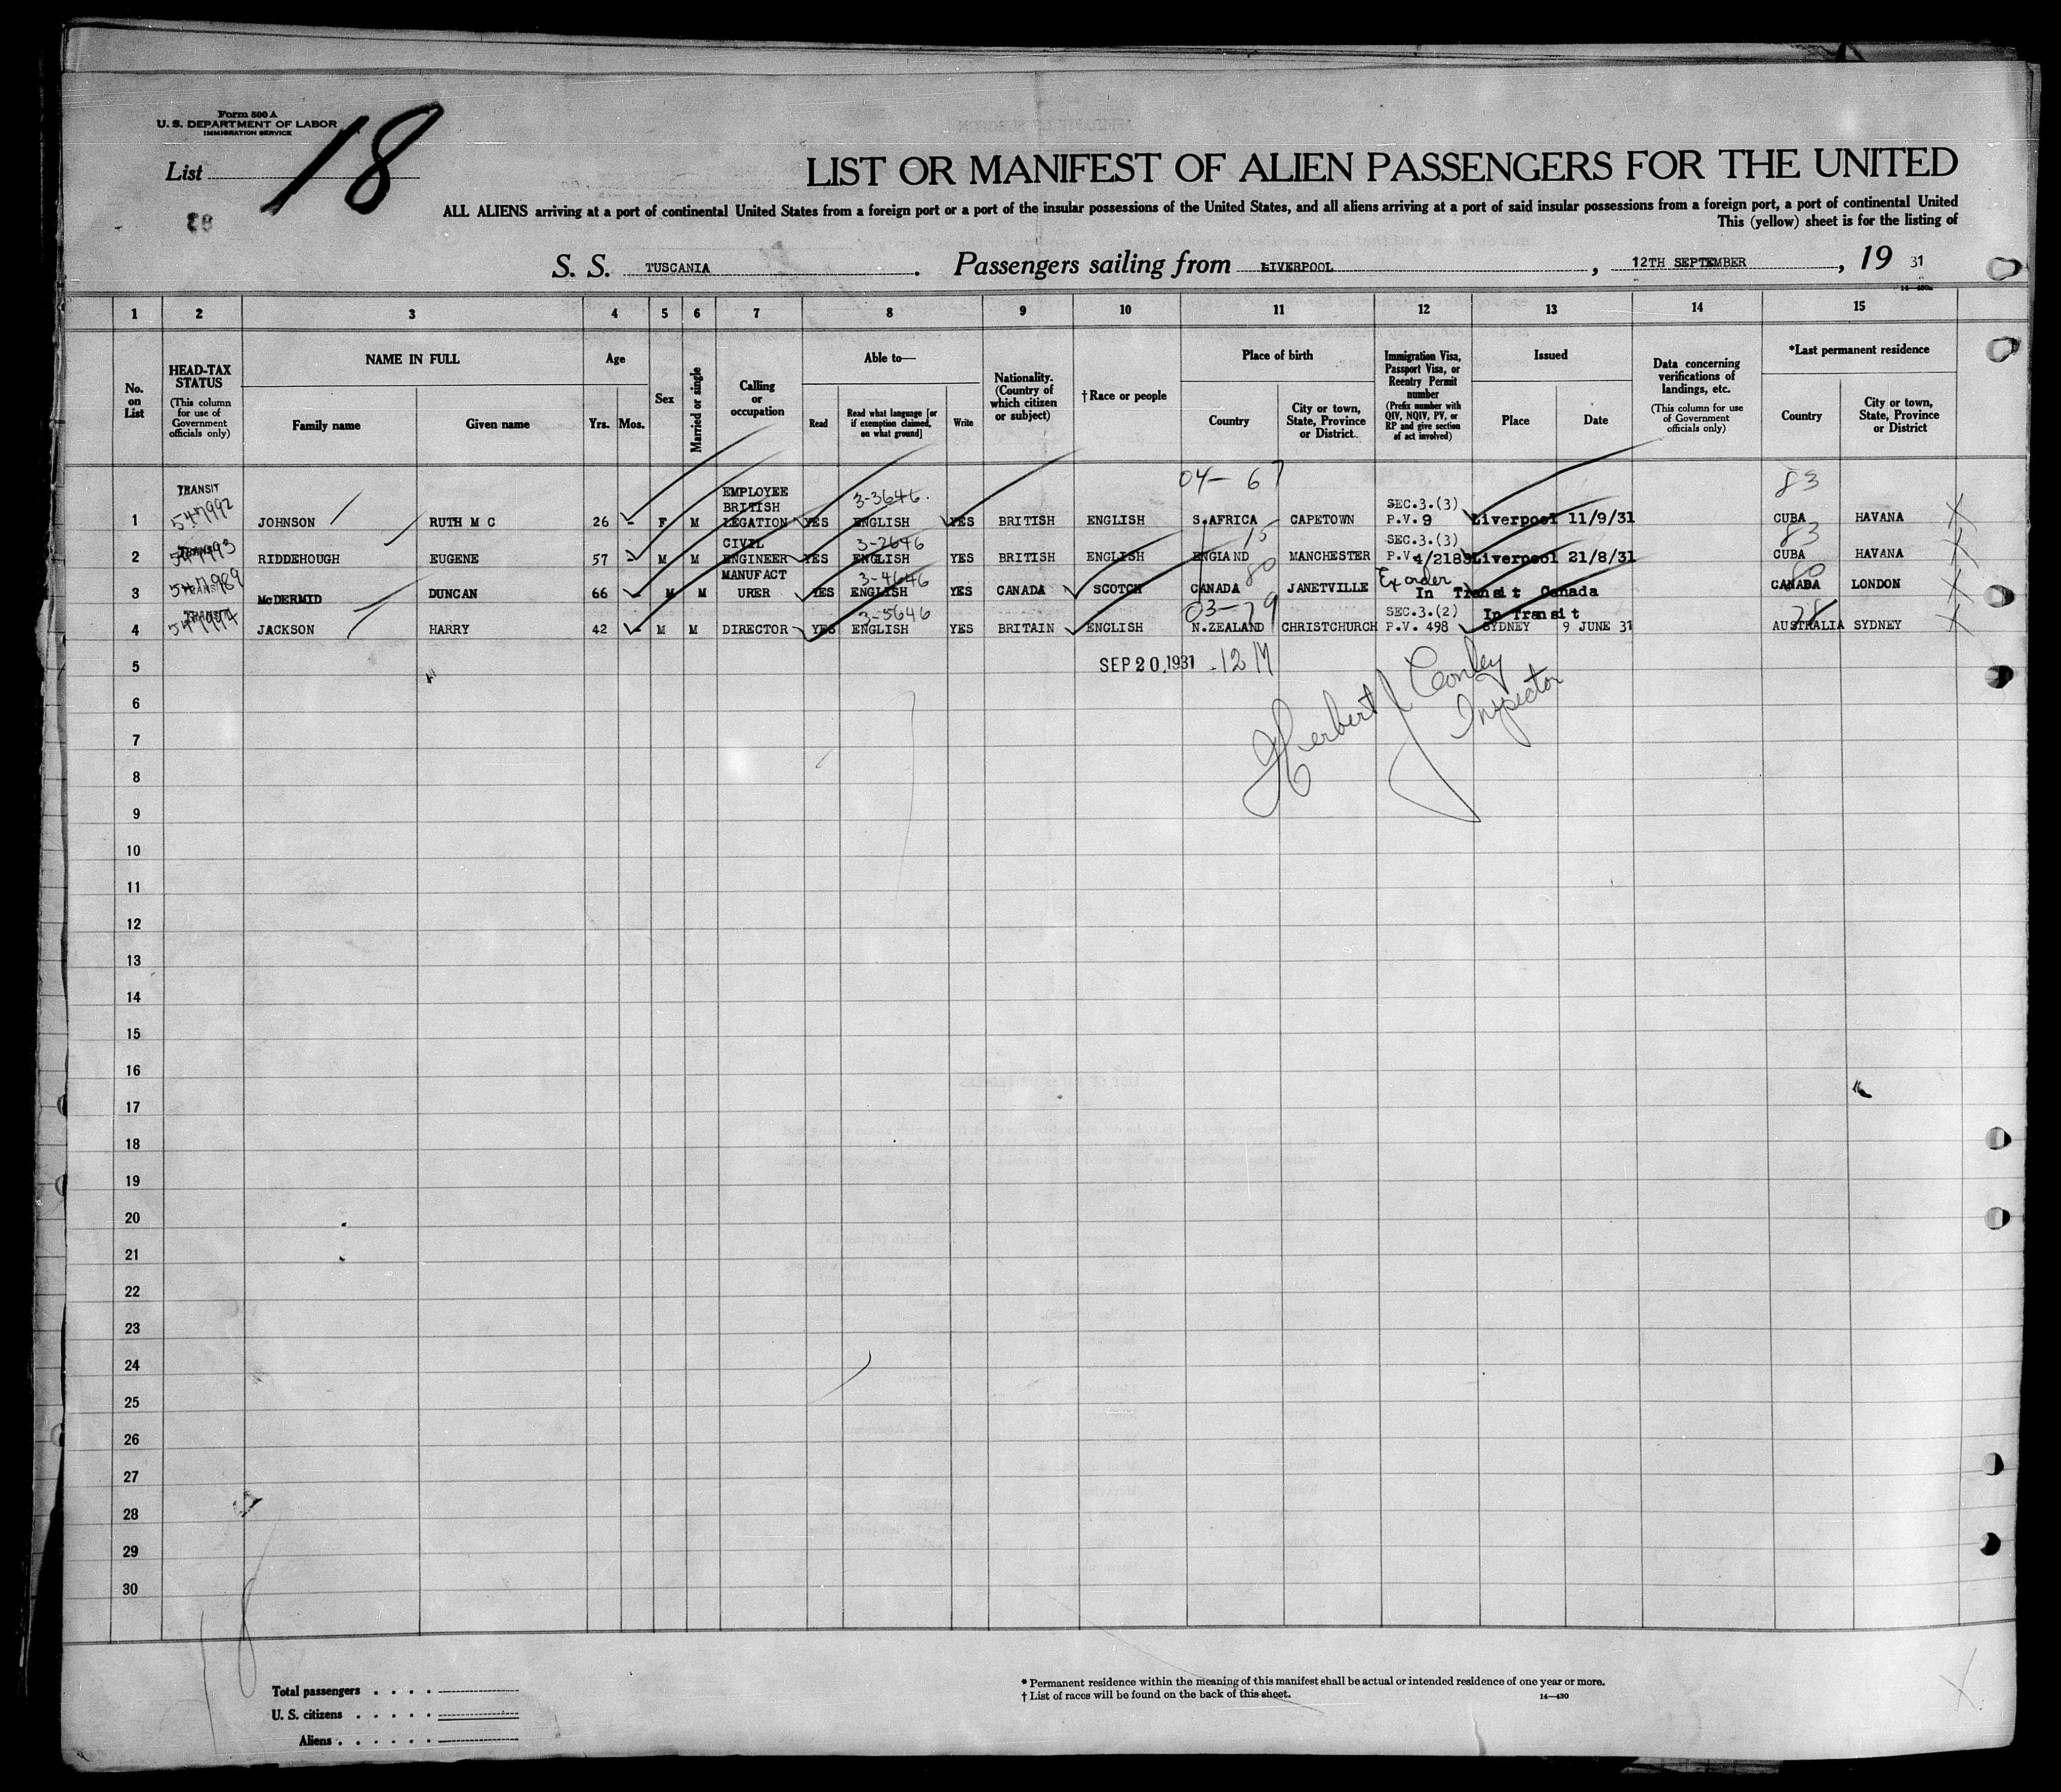 Form 500 A
U. S. DEPARTMENT OF LABOR
IMMIGRATION SERVICE
List 18
28
LIST OR MANIFEST OF ALIEN PASSENGERS FOR THE UNITED
ALL ALIENS arriving at a port of continental United States from a foreign port or a port of the insular possessions of the United States, and all aliens arriving at a port of said insular possessions from a foreign port, a port of continental United
This (yellow) sheet is for the listing of
S. S. TUSCANIA . Passengers sailing from LIVERPOOL , 12TH SEPTEMBER , 19 31
1 2 3 4 5 6 7 8 9 10 11 12 13 14 15
No. on List
HEAD-TAX STATUS (This column for use of Government officials only)
NAME IN FULL
Family name Given name
Age
Yrs. Mos.
Sex
Married or single
Calling or occupation
Able to—
Read Read what language [or if exemption claimed, on what ground] Write
Nationality. (Country of which citizen or subject)
†Race or people
Place of birth
Country City or town, State, Province or District
Immigration Visa, Passport Visa, or Reentry Permit number (Prefix number with QIV, NQIV, PV, or RP and give section of act involved)
Issued
Place Date
Data concerning verifications of landings, etc. (This column for use of Government officials only)
*Last permanent residence
Country City or town, State, Province or District
TRANSIT 547992 EMPLOYEE BRITISH 3-3646. 04-67 SEC.3.(3) 83
1 JOHNSON RUTH M C 26 - F M LEGATION YES ENGLISH YES BRITISH ENGLISH S.AFRICA CAPETOWN P.V. 9 Liverpool 11/9/31 CUBA HAVANA
547993 CIVIL 3-2646 15 SEC.3.(3) 83
2 RIDDEHOUGH EUGENE 57 - M M ENGINEER YES ENGLISH YES BRITISH ENGLISH ENGLAND MANCHESTER P.V. 4/2183 Liverpool 21/8/31 CUBA HAVANA
547989 TRANSIT MANUFACT 3-4646 80 Ex order 80
3 McDERMID DUNCAN 66 - M M URER YES ENGLISH YES CANADA SCOTCH CANADA JANETVILLE In Transit Canada CANADA LONDON
547994 3-5646 03-79 SEC.3.(2) In Transit 78
4 JACKSON HARRY 42 - M M DIRECTOR YES ENGLISH YES BRITAIN ENGLISH N.ZEALAND CHRISTCHURCH P.V. 498 SYDNEY 9 JUNE 31 AUSTRALIA SYDNEY
5 SEP 20, 1931 -12 M
Herbert J Conley
Inspector
6
7
8
9
10
11
12
13
14
15
16
17
18
19
20
21
22
23
24
25
26
27
28
29
30
18
Total passengers . . . .
U. S. citizens . . . . .
Aliens . . . . .
* Permanent residence within the meaning of this manifest shall be actual or intended residence of one year or more.
† List of races will be found on the back of this sheet.
14—430